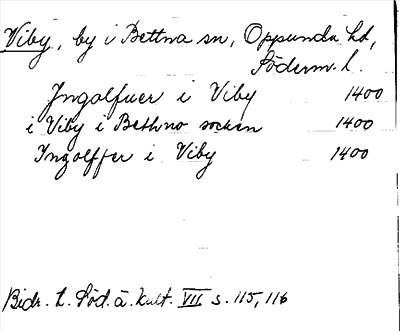 Viby, by i Bettna sn, Oppunda hd,
Söderm. l.
Jngolfuer i Viby 1400
i Viby i Bethno socken 1400
Jngolffer i Viby 1400
Bidr. t. Söd. ä. kult. VII s. 115, 116